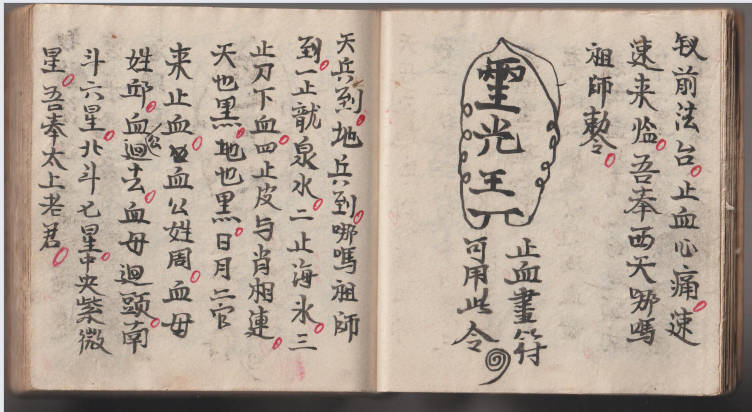 釵前法台止血心痛速
速来临吾奉西天哪嗎
祖師勅令
霊光王
止血畫符
可用此令
天兵到地兵到哪嗎祖師
到一止龍泉水二止海氷三
止刀下血四止皮与肖相連
天也黑地也黑日月二官
来止血血公姓周血母
姓邱血公迴去血母迴頭南
斗六星北斗七星中央紫微
星吾奉太上老君